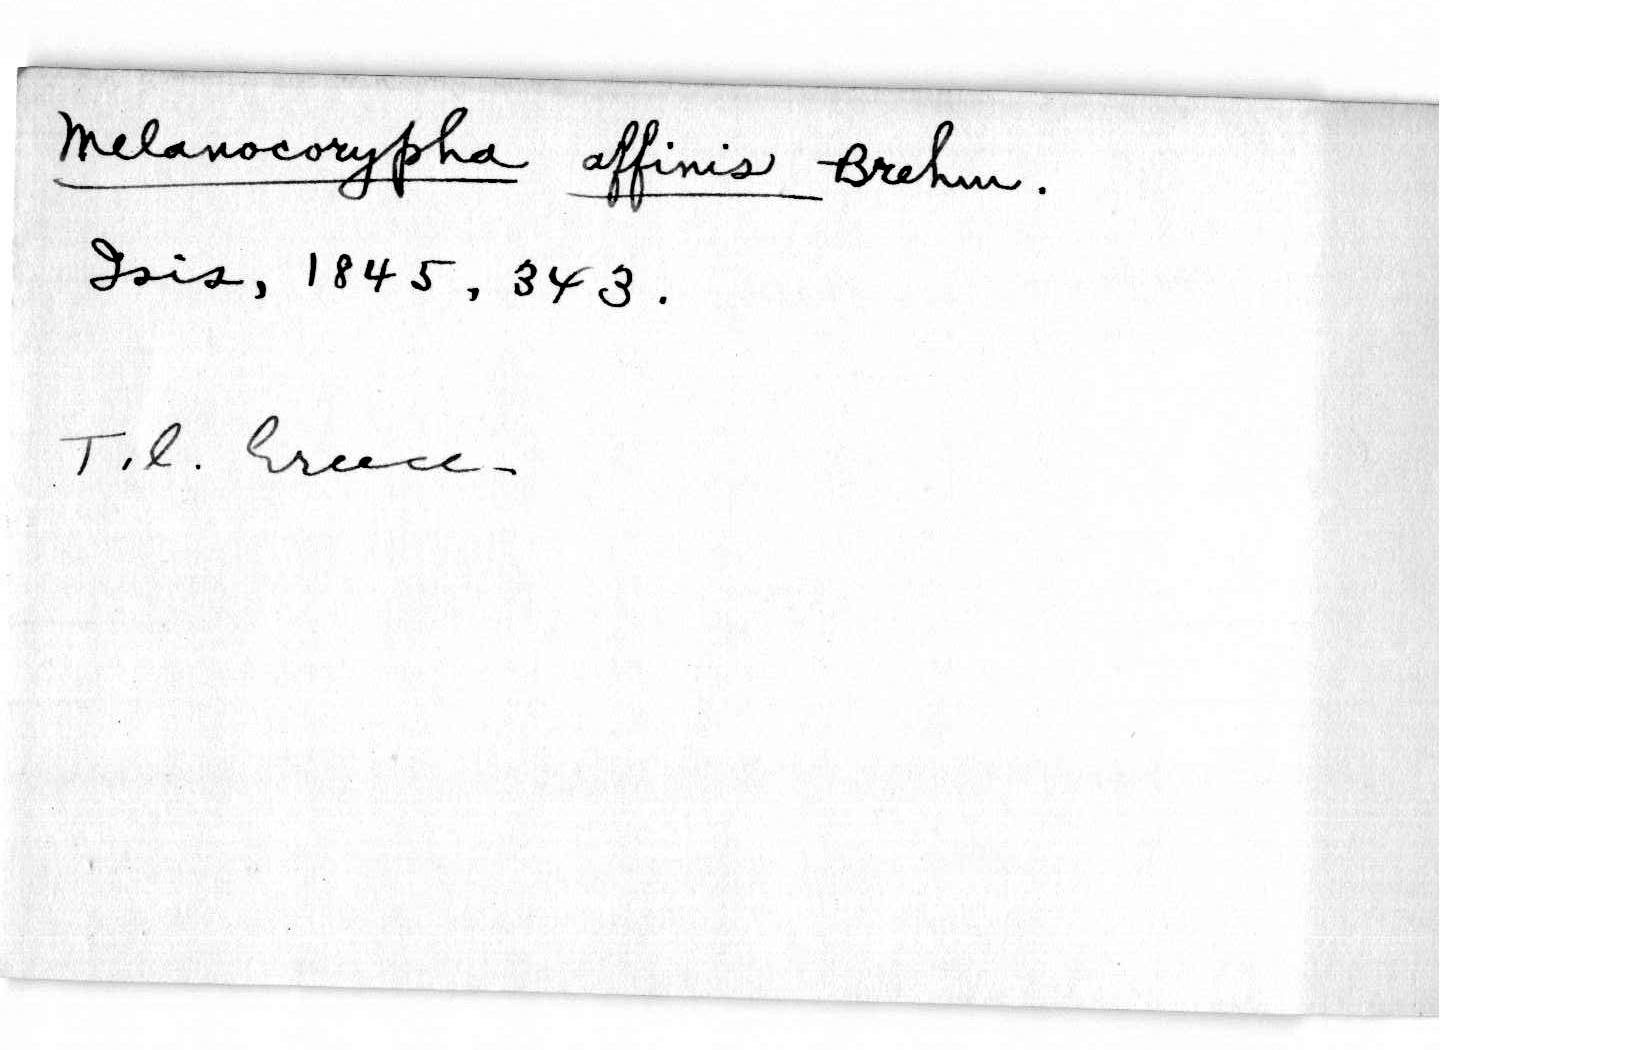 Melanocorypha affinis Brehm.
Isis, 1845, 343.
T.l. Greece-